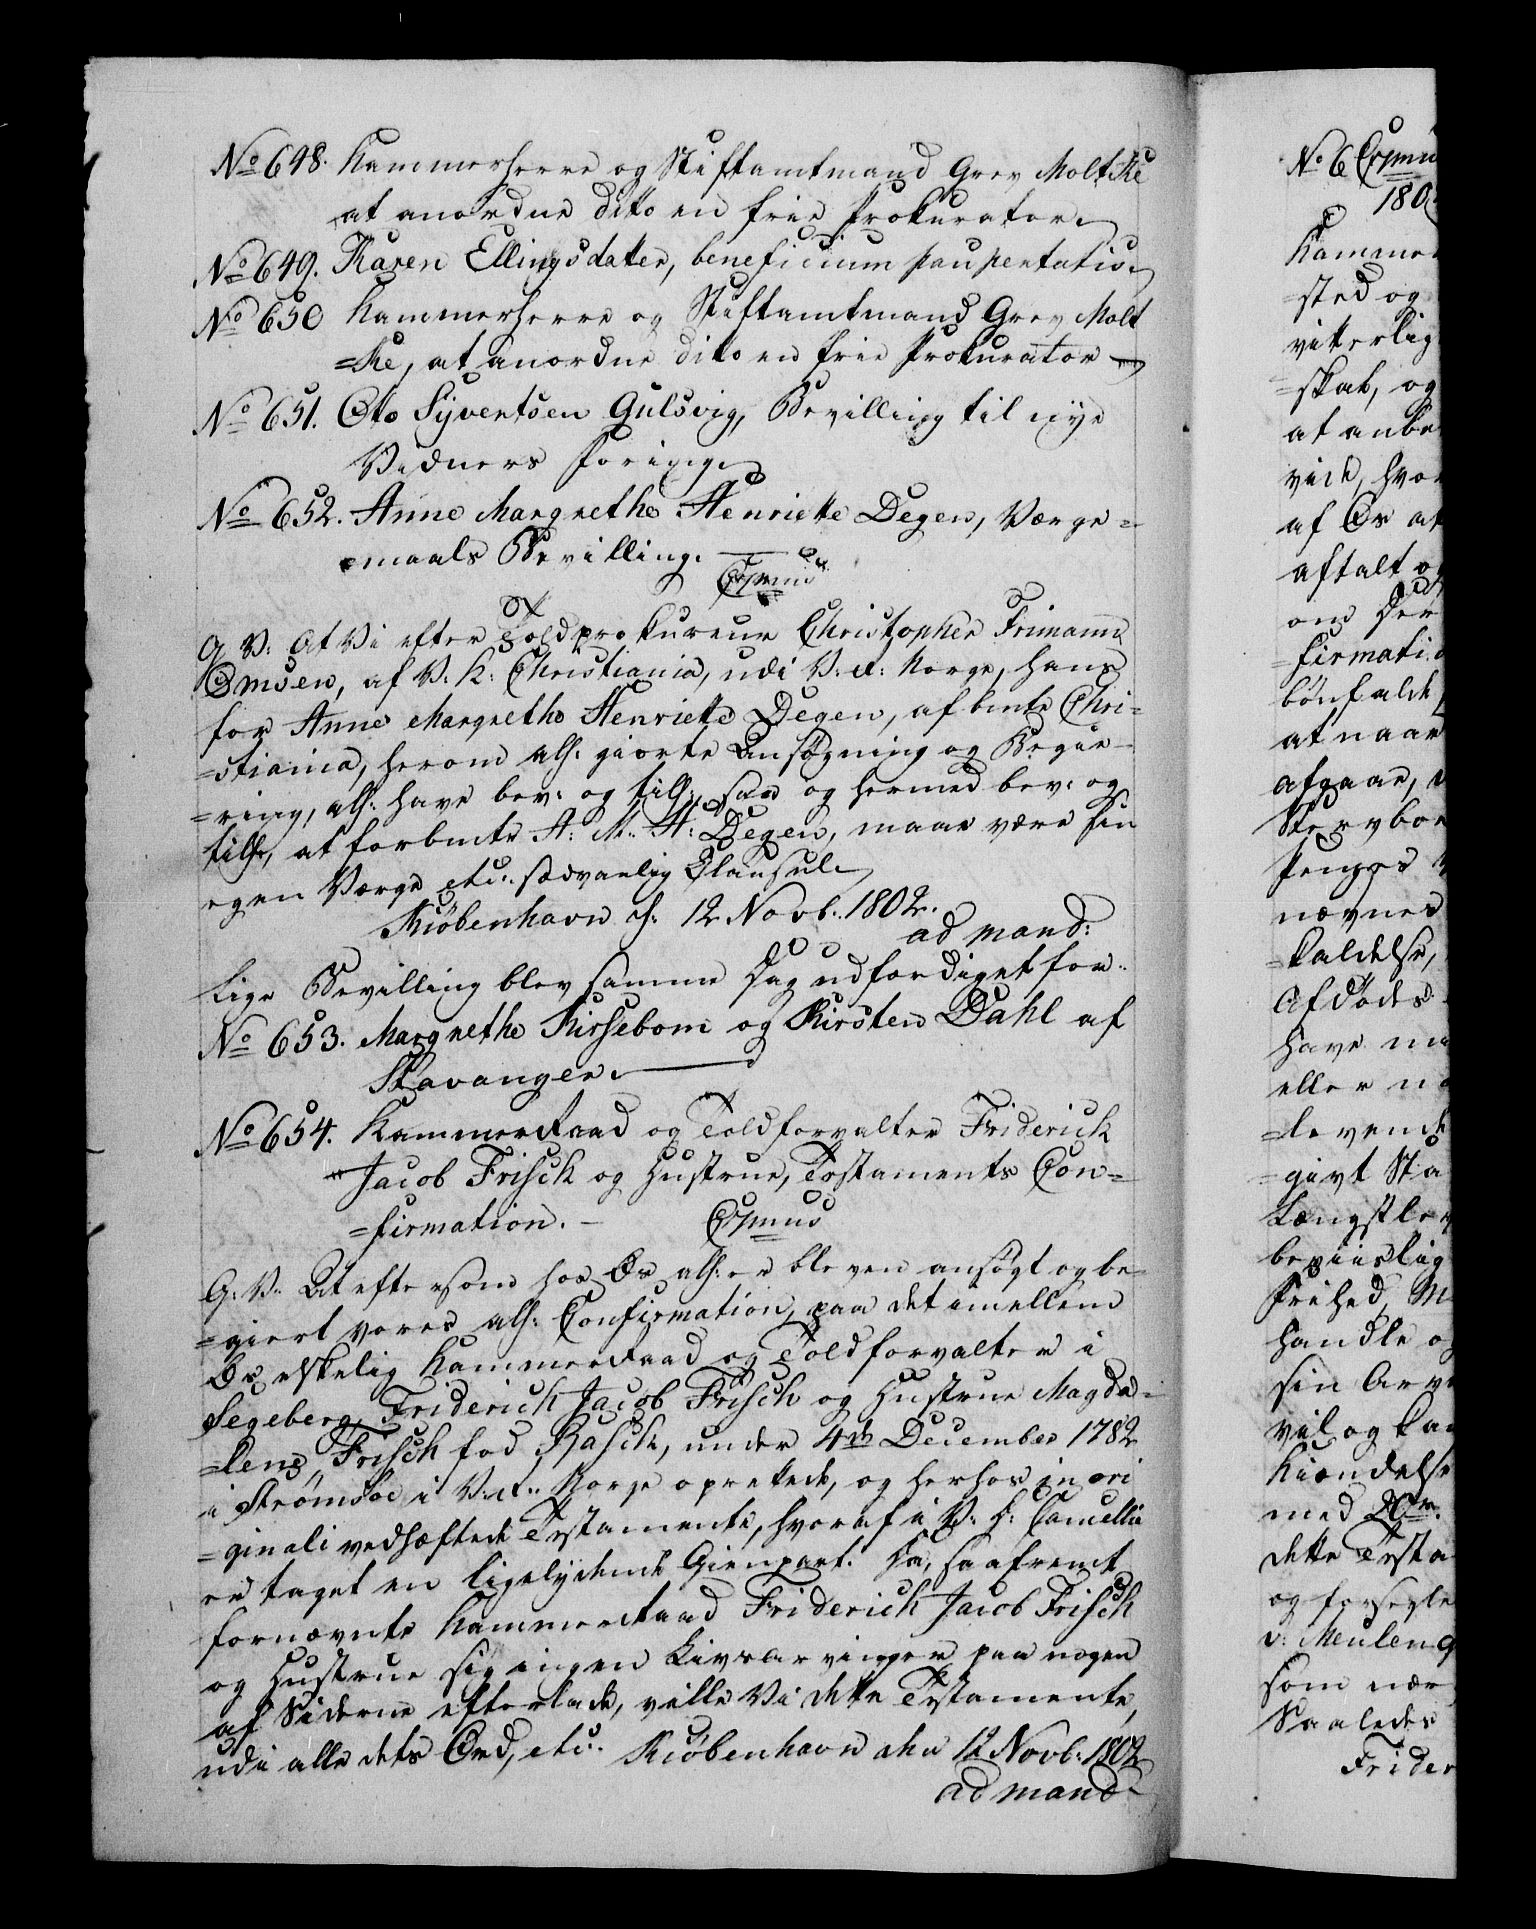 No 648. Kammerherre og Stiftamtmand Grev Moltke
at anordne dito en frie Prokurator.
No 649. Karen Ellingsdatter, beneficium paupertatis.
No 650 Kammerherre og Stiftamtmand Grev Molt
=ke, at anordne dito en frie Prokurator
No 651. Otto Syvertsen Gulsvig, Bevilling til nye
Vidners Føring.
No 652. Anne Margrethe Henriette Degen, Værge=
=maals Bevilling.
Expmus
G. V: At Vi efter Toldprokureur Christopher Frimann
Omsen, af V. K: Christiania, udi V: R: Norge, hans
for Anne Margrethe Henriette Degen, af bmte Chri=
=stiania, herom all: giorte Ansøgning og Begie=
=ring, all: have bev: og till:, saa og hermed bev: og
till:, at forbmte A: M: H: Degen, maae være sin
egen Værge etc: sædvanlig Clausul.
Kiøbenhavn d: 12 Novb: 1802.
ad mand:
Lige Bevilling blev samme Dag udfærdiget for
No 653. Margrethe Kirsebom og Kirsten Dahl af
Stavanger.
No 654. Kammerraad og Toldforvalter Friderich
Jacob Frisch og Hustrue, Testaments Con=
=firmation. Expmus
G: V: At eftersom hos Os all: er bleven ansøgt og be=
=giert vores all: Confirmation paa det imellem
Os elskelig Kammerraad og Toldforvalter i
Segeberg, Friderich Jacob Frisch og Hustrue Magda=
=lene Frisch fød Rasch, under 4de December 1782
i Strømsøe i V: R: Norge oprettede, og herhos in ori
=ginali vedhæftede Testamente, hvoraf i V: D: Cancellie
er taget en ligelydende Gienpart. Da, saafremt
fornævnte Kammerraad Friderich Jacob Frisch
og Hustrue sig ingen Livsarvinger paa nogen
af Siderne efterlade, ville Vi dette Testamente,
udi alle dets Ord, etc. Kiøbenhavn den 12 Novb: 1802
ad mand
No 6 Expmu
180
Kamme
=sted og
vitterlig
=skab, og
at anbe
vide, hvo
af Os at
aftalt o
om der
=firmati
bønfalde
at naar
afgaar,
Stervboe
Penges
nævnes
=kaldelse,
Afdødes
have
eller
=levende
=givt
Længstle
beviislig
Frihed, M
handle o
sin Arv
vil og ka
Kiendelse
med
dette Testa
og forsegle
v: Meulen
som nær
Saaledes
Frider